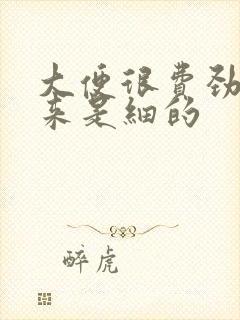 大便很費勁
来是細的
醉虎